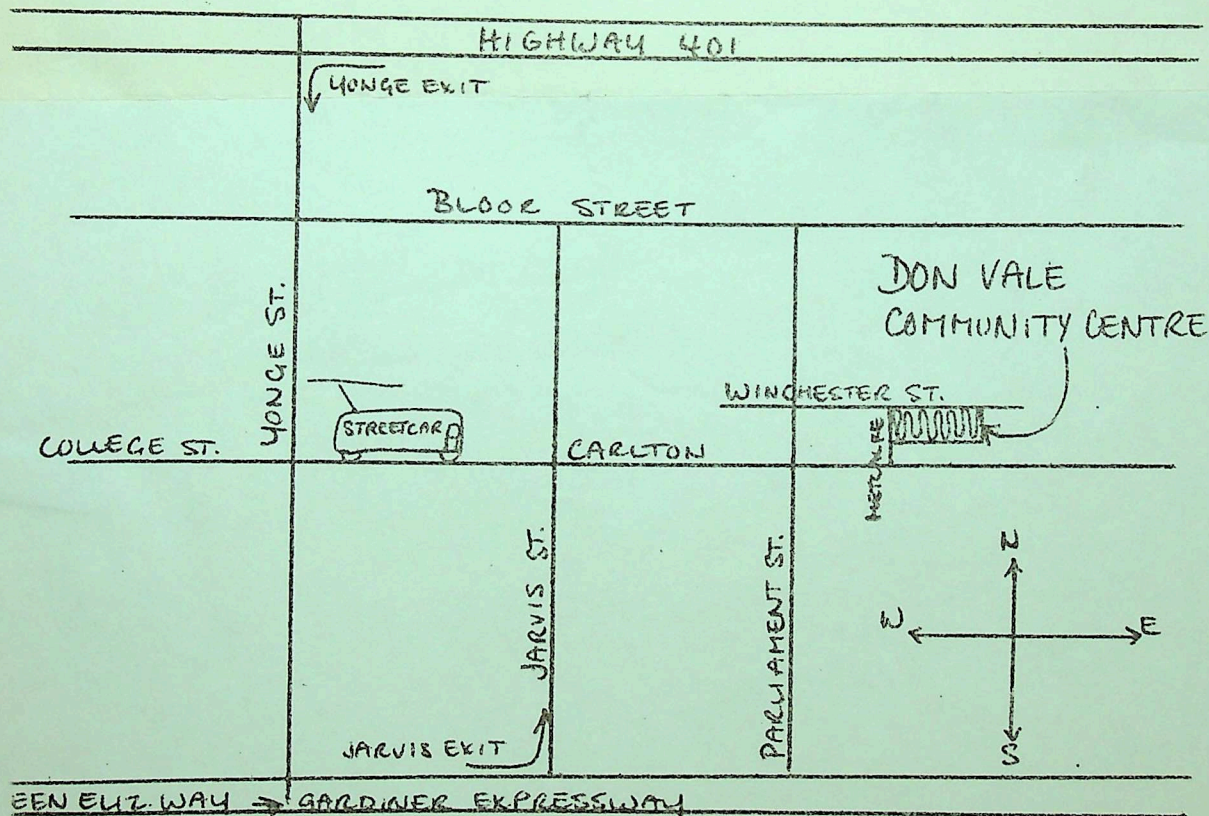 HIGHWAY 401
YONGE EXIT
BLOOR STREET
DON VALE
COMMUNITY CENTRE
YONGE ST.
WINCHESTER ST.
STREETCAR
COLLEGE ST.
CARLTON
METCALFE
N
JARVIS ST.
PARLIAMENT ST.
W
E
JARVIS EXIT
S
EEN ELIZ. WAY → GARDINER EXPRESSWAY